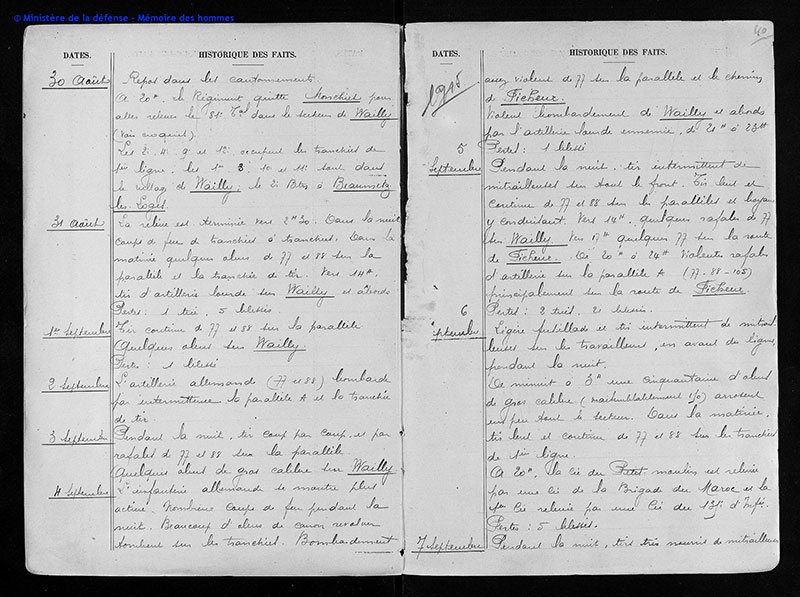 © Ministère de la défense - Mémoire des hommes
DATES.
HISTORIQUE DES FAITS.
30 Août
Repos dans les cantonnements.
A 20h. le Régiment quitte Monchiet pour
aller relever le dans le secteur de Wailly
(voir croquis).
Les 2. 4. 9 et 12 occupent les tranchées de
1ère ligne, les 1ère 3. 10 et 11 sont dans
le village de Wailly; le 2e Bon à Beaumetz
les-Loges.
31 Août
La relève est terminée vers 2h30. Dans la nuit
coups de feu de tranchées à tranchées. Dans la
matinée quelques obus de 77 et 88 sur la
parallèle et la tranchée de tir. Vers 14h.
tir d'artillerie lourde sur Wailly et abords
Pertes: 1 tué, 5 blessés
1er Septembre
Tir continu de 77 et 88 sur la parallèle
Quelques obus sur Wailly.
Pertes: 1 blessé
2 Septembre
L'artillerie allemande (77 et 88) bombarde
par intermittence la parallèle A et la tranchée
de tir.
3 Septemb
Pendant la nuit, tir coup par coup, et par
rafales de 77 et 88 sur la parallèle
Quelques obus de gros calibre sur Wailly
4 Septembre
L'infanterie allemande se montre plus
active. Nombreux coups de feu pendant la
nuit. Beaucoup d'obus de canon revolver
tombent sur les tranchées. Bombardement
40
DATES.
HISTORIQUE DES FAITS.
1915
assez violent de 77 sur la parallèle et le chemin
de Ficheux.
Violent bombardement de Wailly et abords
par l'artillerie lourde ennemie, de 21h à 23h
Pertes: 1 blessé
5
Septembre
Pendant la nuit, tir intermittent de
mitrailleuses sur tout le front. Tir lent et
continu de 77 et 88 sur les parallèles et boyaux
y conduisant. Vers 14h. quelques rafales de 77
sur Wailly. Vers 17h quelques 77 sur la route
de Ficheux. De 20h à 24h violentes rafales
d'artillerie sur la parallèle A (77-88-105)
principalement sur la route de Ficheux.
Pertes: 2 tués, 21 blessés.
6
Septembre
Légère fusillade et tir intermittent de mitrail
leuses sur les travailleurs, en avant des lignes,
pendant la nuit.
De minuit à 3h une cinquantaine d'obus
de gros calibre (vraisemblablement 150) arrosent
un peu tout le secteur. Dans la matinée,
tir lent et continu de 77 et 88 sur les tranchées
de 1ère ligne.
A 20h. la Cie du Petit moulin est relevée
par une Cie de la Brigade du Maroc et la
Cie relevée par une Cie du d'Infie.
Pertes: 5 blessés.
7 Septembre
Pendant la nuit, tirs très nourris de mitrailleuses